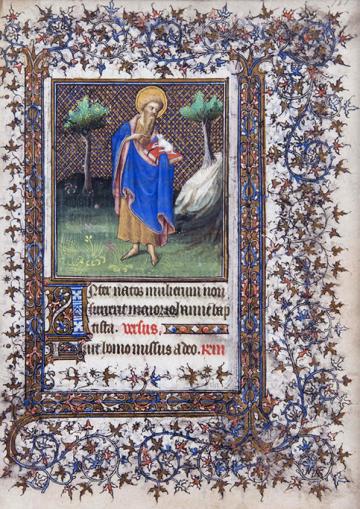 Inter natos mulierum non
surrexit maior iohanne bap
tista. versus,
Fuit homo missus a deo. Rm